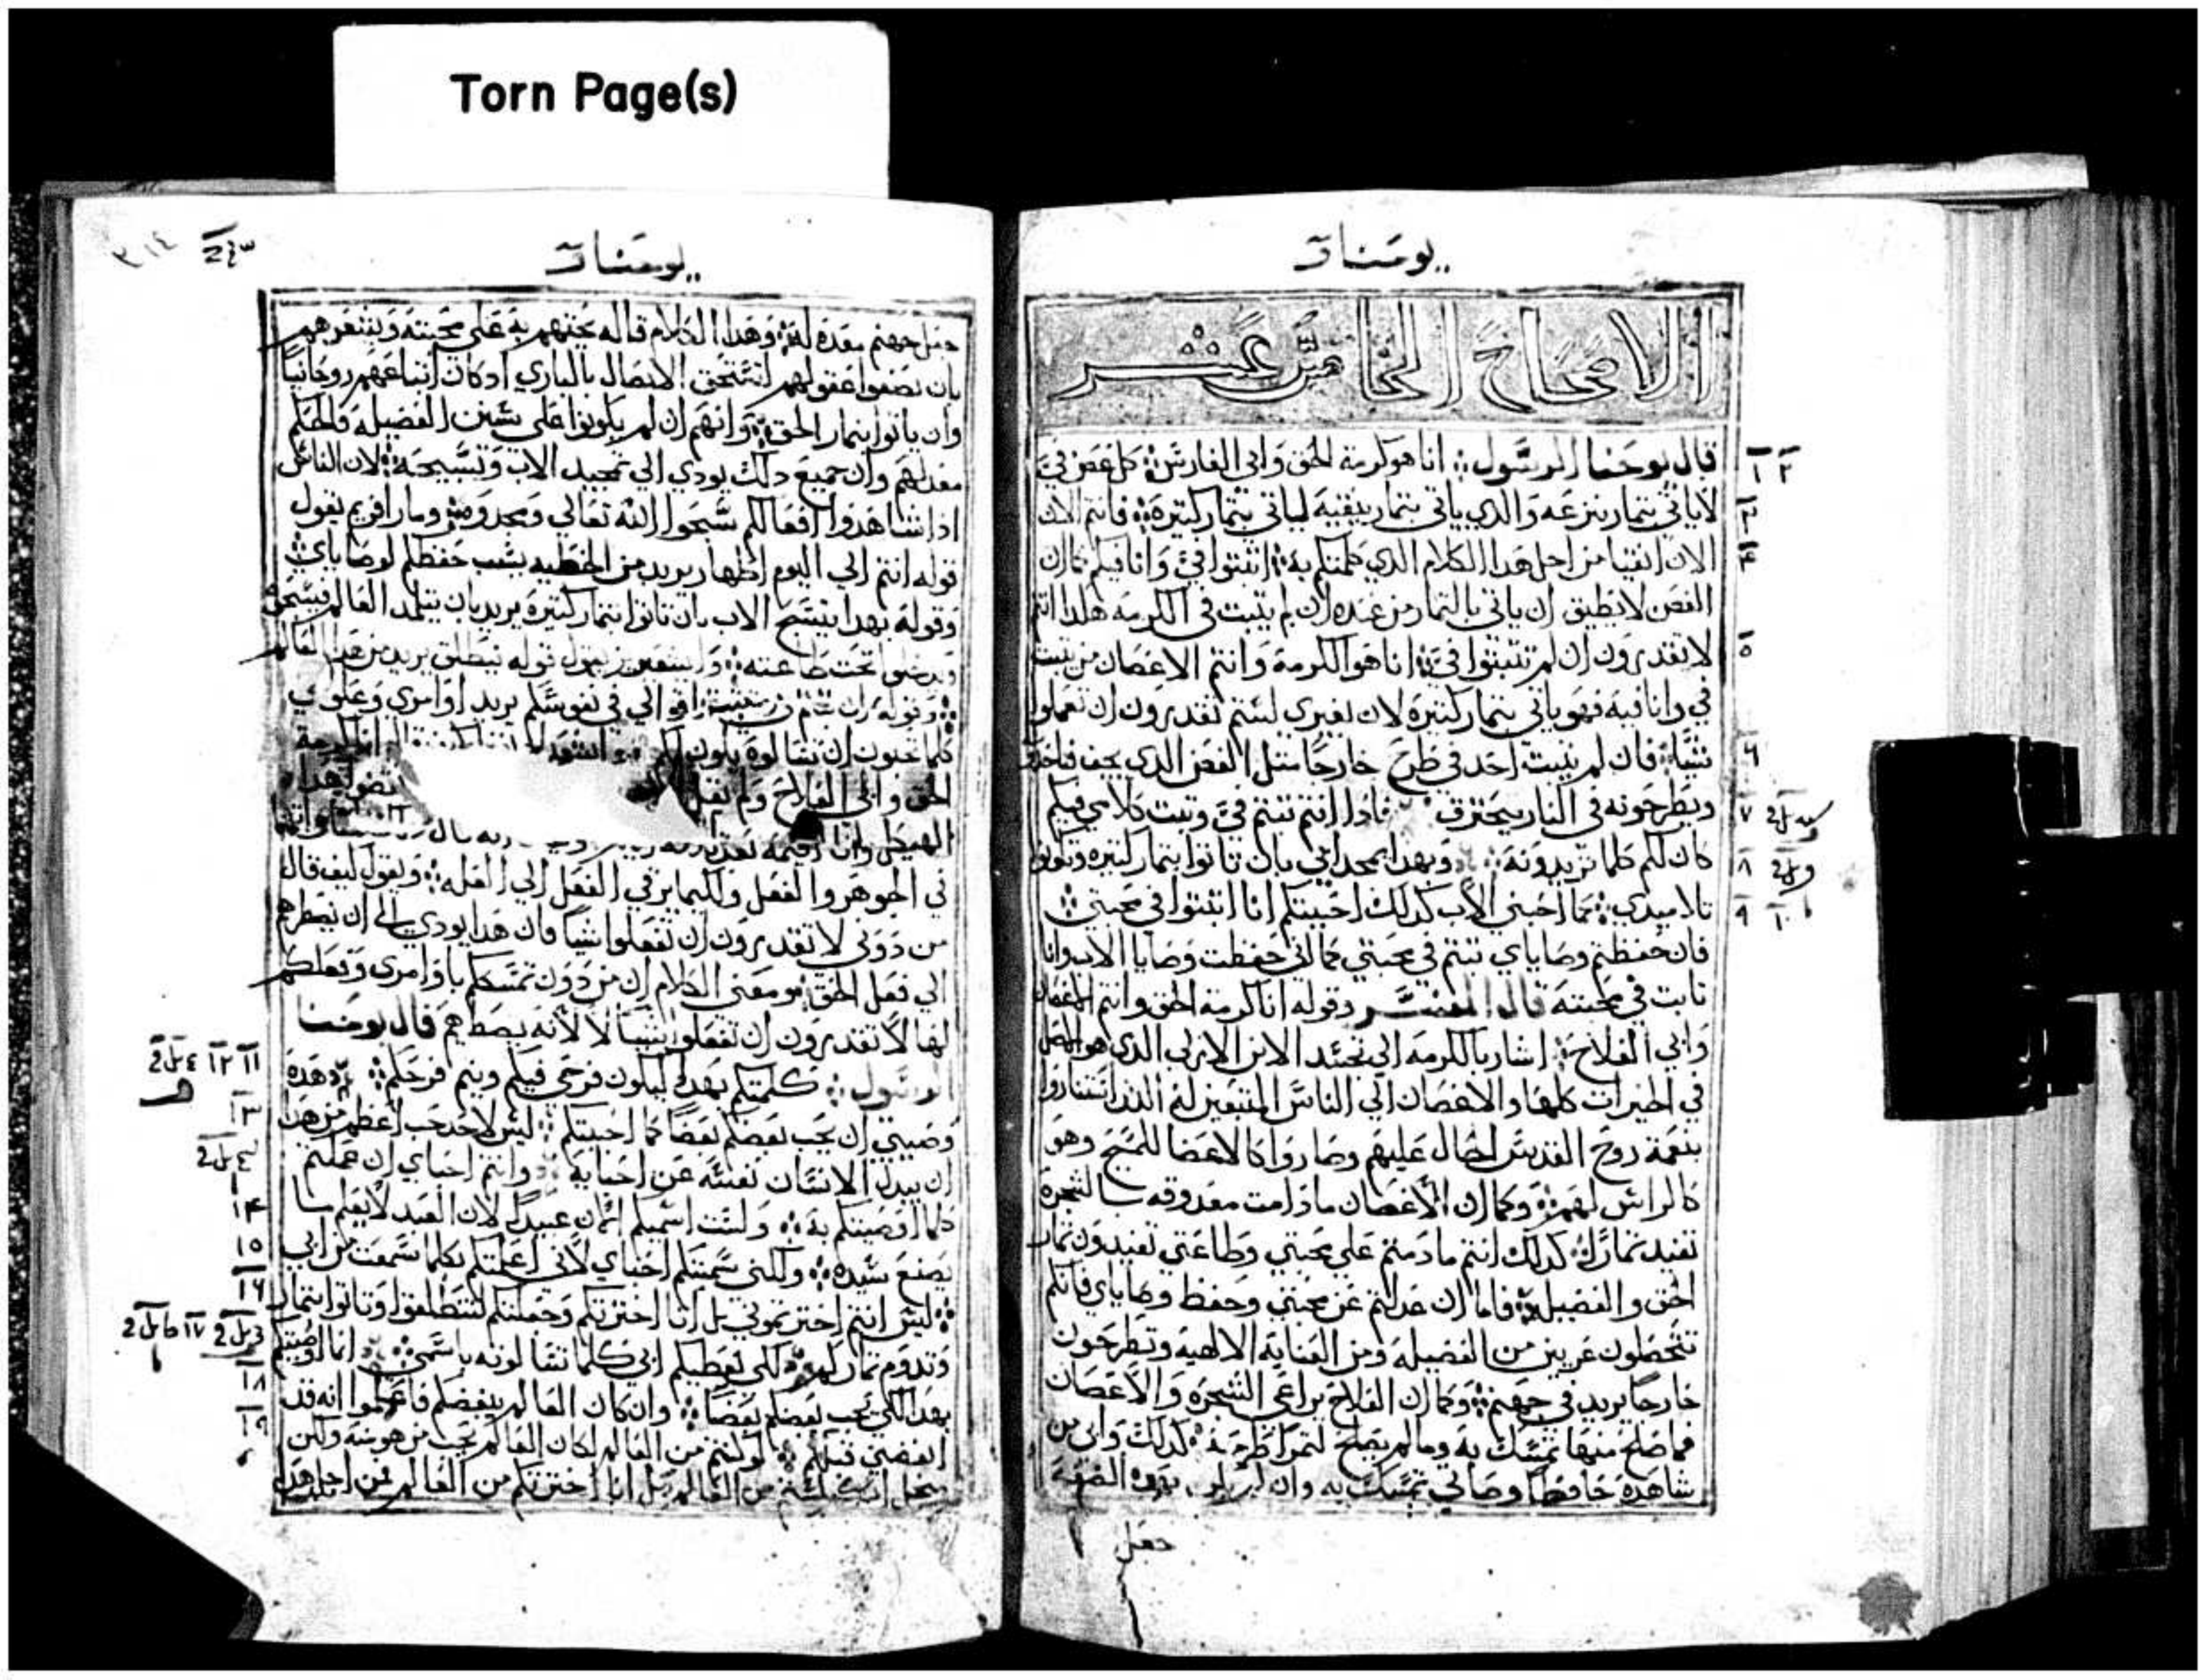 Torn Page(s)
يوحنا
الاصحاح الخامس عشر
قال يوحنا الرسول انا هو كرمة الحق وابي الفارس كل غصن في
لا ياتي بثمار ينزعه والذي ياتي بثمار ينقيه لياتي بثمار كثيرة فانتم الان
الان انقيا من اجل هدا الكلام الدي كلمتكم به اثبتوا في وانا فيكم كما ان
الغصن لا يطيق ان ياتي بالثمار من عنده ان لم يثبت في الكرمه هكدا انتم
لا تقدرون ان لم تثبتوا في انا هو الكرمة وانتم الاغصان من يثبت
في وانا فيه فهو ياتي بثمار كثيرة لان بغيري لستم تقدرون ان تعملوا
شيًا فان لم يثبت احد في طرح خارجًا مثل الغصن الدي يجف
ويطرحونه في النار يحترق فادا انتم ثبتم في وثبت كلامي فيكم
كان لكم كلما تريدونه وبهدا يمجد ابي بان تاتوا بثمار كثيره وتكونوا
تلاميدي كما احبني الاب كدلك احببتكم انا اثبتوا في محبتي
فان حفظتم وصاياي ثبتم في محبتي كما اني حفظت وصايا الاب وانا
ثابت في محبته قال المفسر وقوله انا كرمة الحق وانتم الاغصان
وابي الفلاح اشار بالكرمه الي تجسد الابن الازلي الدي هو الاصل
في الخيرات كلها والاغصان الي الناس المتبعين له الذين استناروا
بنعمة روح القدس الحال عليهم وصاروا كالاعضا للمسيح وهو
كالراس لهم وكما ان الاغصان ما دامت معدوقه بالشجرة
تفيد ثمارًا كدلك انتم ما دمتم علي محبتي وطاعتي تفيدون ثمار
الحق والفضيله فاما ان عدلتم عن محبتي وحفظ وصاياي فانكم
تحصلون عريين من الفضيله ومن العناية الالهيه وتطرحون
خارجًا يريد في جهنم وكما ان الفلاح يراعي الشجره والاغصان
فما صلح منها تمسك به وما لم يصلح لثمر اطرحه كدلك وابي من
شاهده حافظًا وصاياي تمسك به وان لم بهده الصفه
جعل
يوحنا
جعل جهنم معده له وهدا الكلام قاله يحثهم به علي محبته ويشعرهم
بان يصفوا عقولهم لتستحق الاتصال بالباري اد كان اتباعهم روحانيًا
وان ياتوا بثمار الحق وانهم ان لم يكونوا علي سنن الفضيله فالحكم
معد لهم وان جميع دلك يودي الي تمجيد الاب وتسبيحه لان الناس
ادا شاهدوا افعالكم سبحوا الله تعالي ومجدوه ومار افريم يقول
قوله انتم الي اليوم اطهار يريد من الخطيه بسبب حفظكم لوصاياي
وقوله بهدا يتسبح الاب بان تاتوا بثمار كثيرة يريد بان يتلمد العالم
ويدخلوا تحت طاعته يقول قوله ينطلق يريد من هدا العالم
وقوله ان ثبتم اقوالي في نفوسكم يريد اوامري
كلما تحبون ان تسالوه يكون لكم انا كرمة
الحق وابي الفلاح ولم يقل
الهيكل وان اقيمه
في الجوهر والفعل وانما يرقي الفعل الي العله ويقول كيف قال
من دوني لا تقدرون ان تفعلوا شيًا فان هدا يودي الي ان يضطرهم
الي فعل الحق ومعني الكلام ان من دون تمسككم باوامري وفعلكم
لها لا تقدرون ان تفعلوا شيًا لا لانه يضطرهم قال يوحنا
الرسول كلمتكم بهدا ليكون فرحي فيكم ويتم فرحكم هده
وصيتي ان يحب بعضكم بعضًا كما احببتكم ليس لاحد حب اعظم من هدا
ان يبدل الانسان نفسه عن احبايه وانتم احباي ان عملتم
كلما اوصيتكم به ولست اسميكم الان عبيدًا لان العبد لا يعلم ما
يصنع سيده ولكني سميتكم احباي لاني اعلمتكم بكلما سمعت من ابي
ليس انتم اخترتموني بل انا اخترتكم وجعلتكم لتنطلقوا وتاتوا بثمار
وتدوم ثماركم لكي يعطيكم ابي كلما تسالونه باسمي انما اوصيتكم
بهدا لكي يحب بعضكم بعضًا وان كان العالم يبغضكم فاعلموا انه قد
ابغضني قبلكم لو كنتم من العالم لكان العالم يحب من هو منه ولكن
لستم من العالم بل انا اخترتكم من العالم فمن اجل هدا